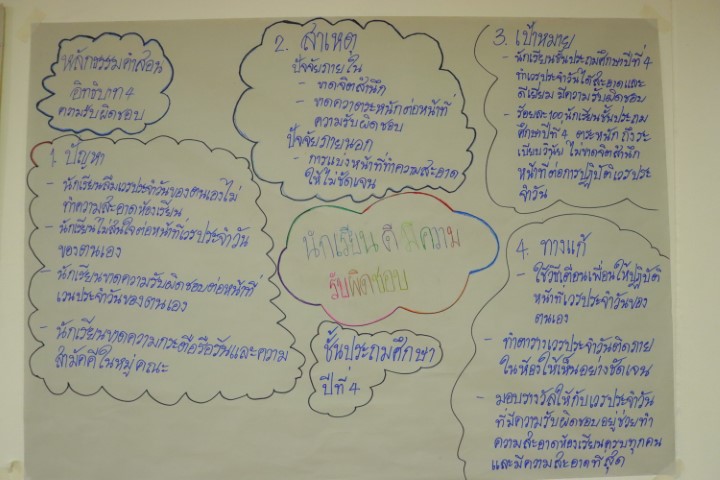 หลักธรรมคำสอน
อิทธิบาท 4
ความรับผิดชอบ
1. ปัญหา
- นักเรียนลืมเวรประจำวันของตนเองไม่
ทำความสะอาดห้องเรียน
- นักเรียนไม่สนใจต่อหน้าที่เวรประจำวัน
ของตนเอง
- นักเรียนขาดความรับผิดชอบต่อหน้าที่
เวนประจำวันของตนเอง
- นักเรียนขาดความกระตือรือร้นและความ
สามัคคีในหมู่คณะ
2. สาเหตุ
ปัจจัยภายใน
- ขาดจิตสำนึก
- ขาดความตระหนักต่อหน้าที่
ความรับผิดชอบ
ปัจจัยภายนอก
- การแบ่งหน้าที่ทำความสะอาด
ให้ไม่ชัดเจน
นักเรียนดี มีความ
รับผิดชอบ
ชั้นประถมศึกษา
ปีที่ 4
3. เป้าหมาย
- นักเรียนชั้นประถมศึกษาปีที่ 4
ทำเวรประจำวันได้สะอาดและ
ดีเยี่ยม มีความรับผิดชอบ
- ร้อยละ 100 นักเรียนชั้นประถม
ศึกษาปีที่ 4 ตระหนัก ถึงระ
เบียบวินัย ไม่ขาดจิตสำนึก
หน้าที่ต่อการปฏิบัติเวรประ
จำวัน
4. ทางแก้
- ใช้วิธีเตือนเพื่อนให้ปฏิบัติ
หน้าที่เวรประจำวันของ
ตนเอง
- ทำตารางเวรประจำวันติดภาย
ในห้องให้เห็นอย่างชัดเจน
- มอบรางวัลให้กับเวรประจำวัน
ที่มีความรับผิดชอบอยู่ช่วยทำ
ความสะอาดห้องเรียนครบทุกคน
และมีความสะอาดที่สุด